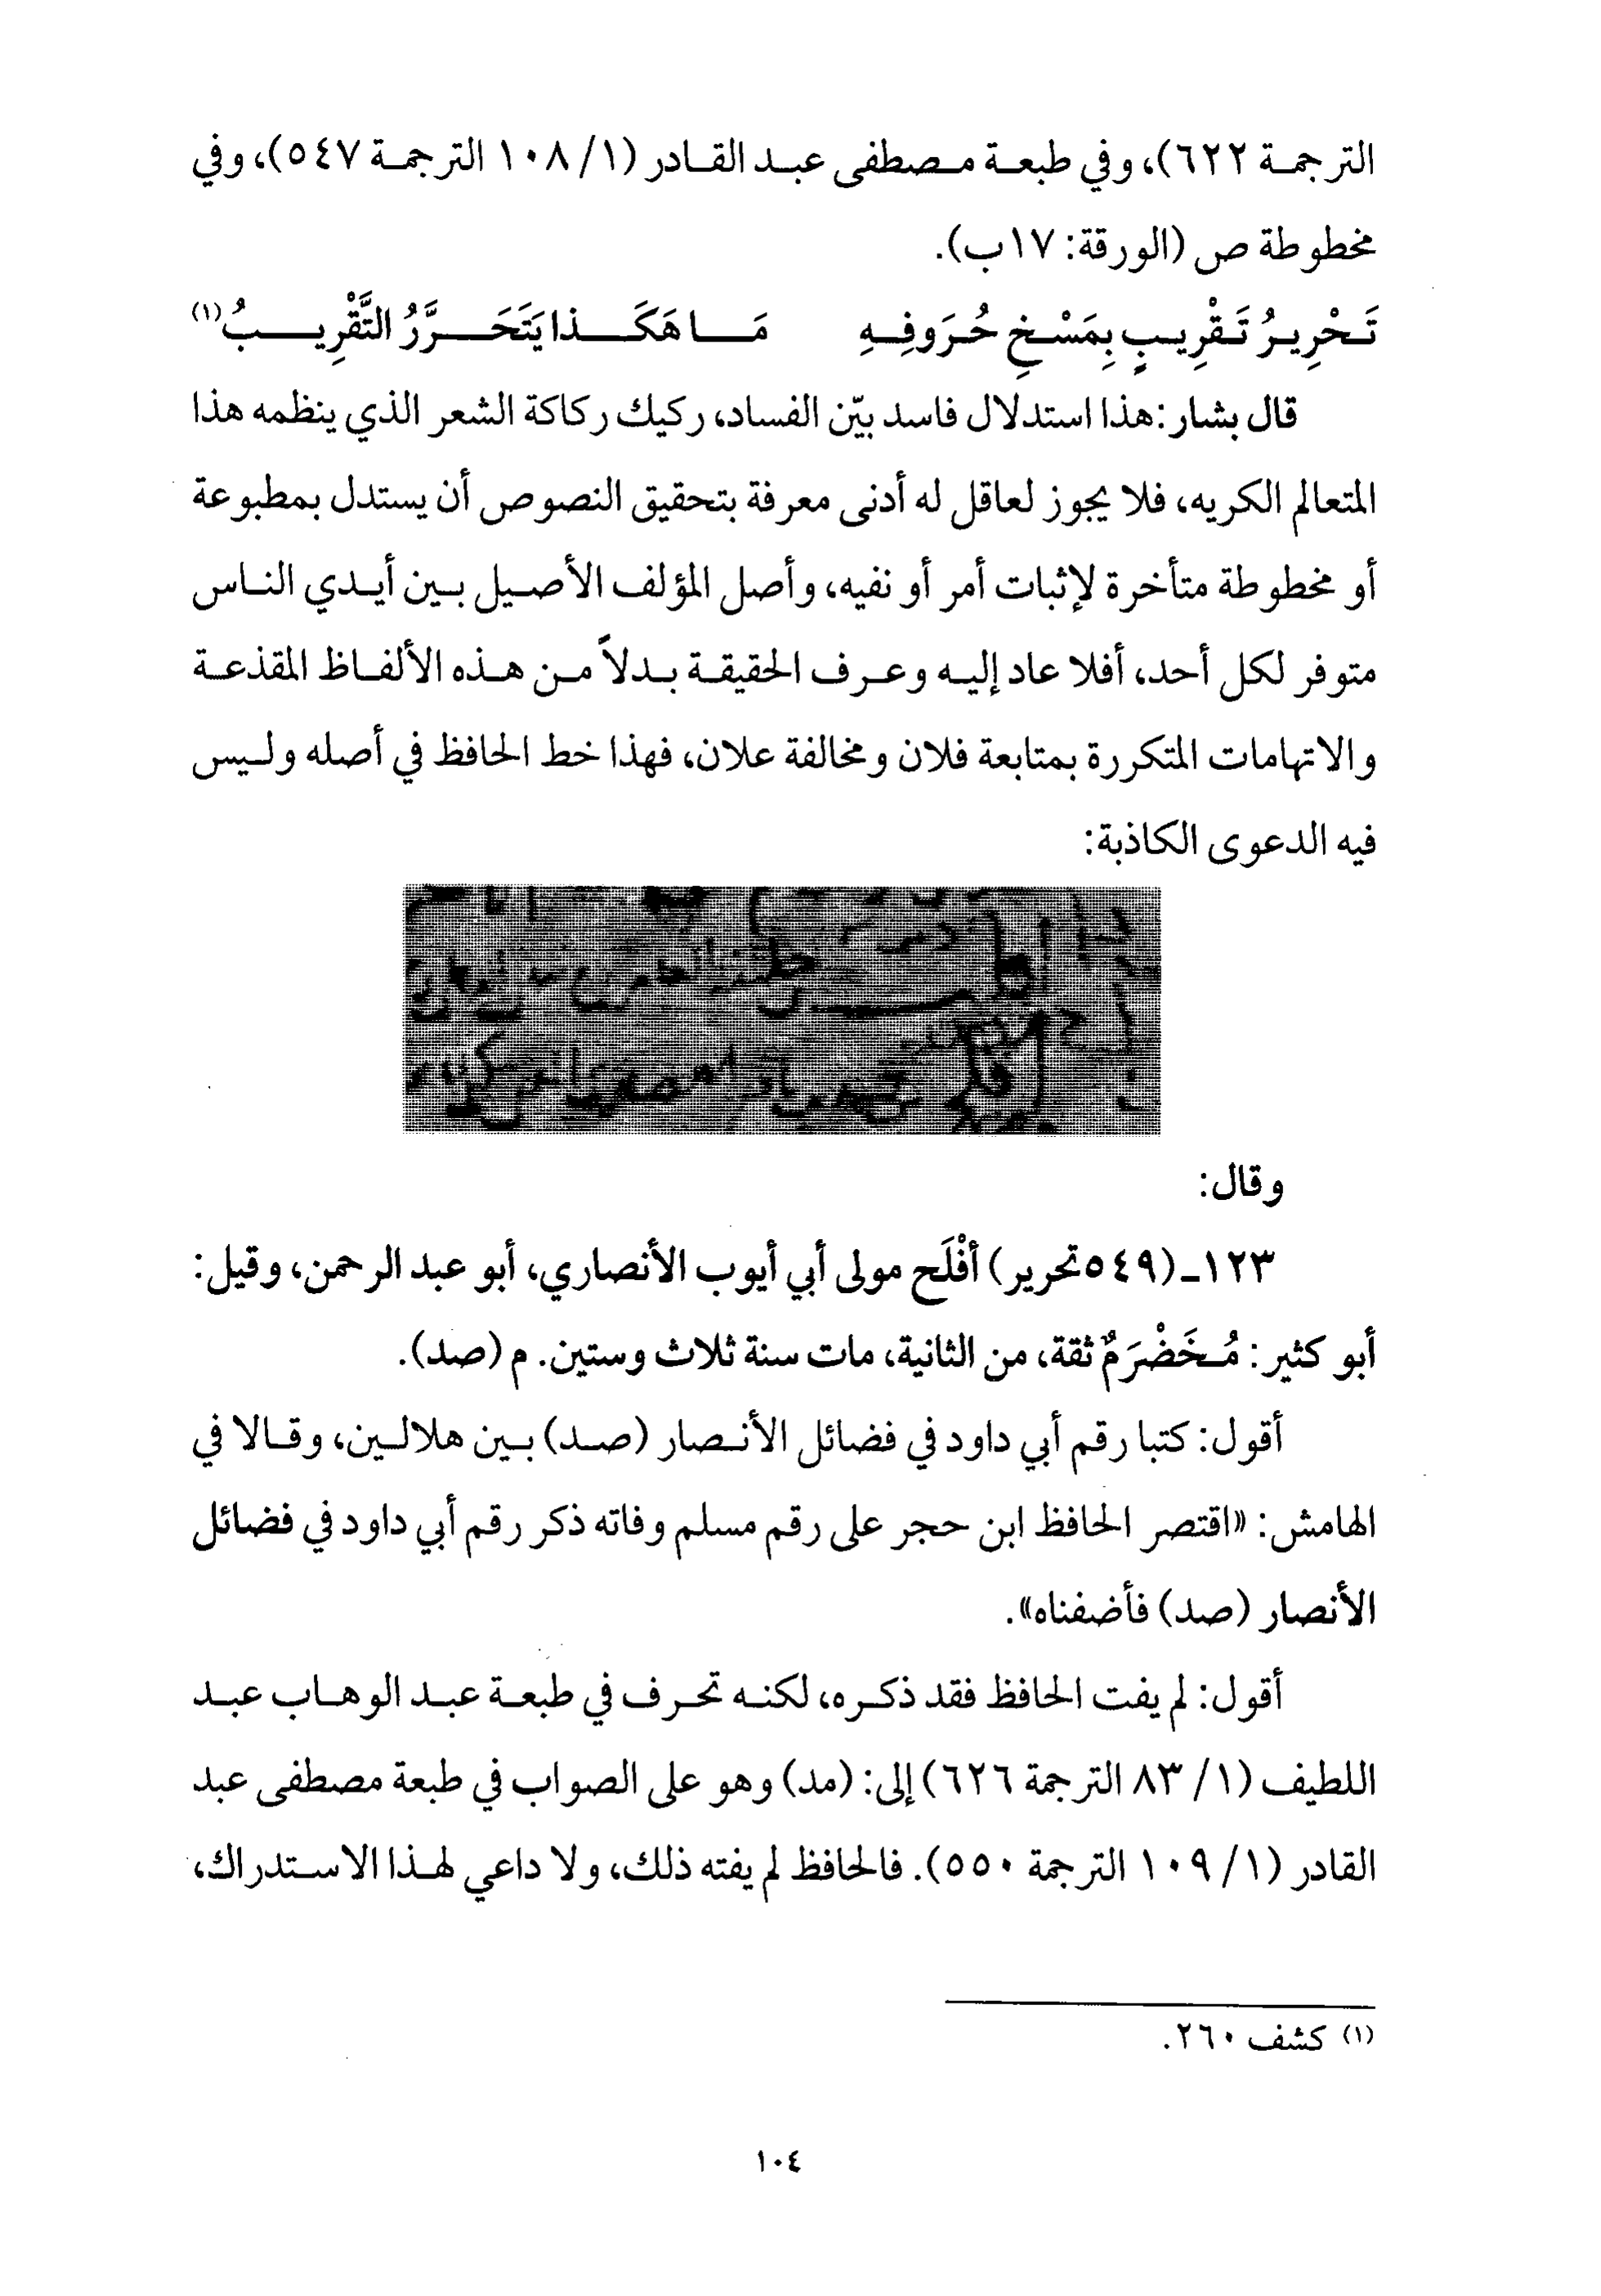 الترجمة ٦٢٢)، وفي طبعة مصطفى عبد القادر (١/ ١٠٨ الترجمة ٥٤٧)، وفي
مخطوطة ص (الورقة: ١٧ب).
تَحْرِيرُ تَقْرِيبٍ بِمَسْخِ حُرَوفِهِ مَا هَكَذا يَتَحَرَّرُ التَّقْرِيبُ(١)
قال بشار: هذا استدلال فاسد بيّن الفساد، ركيك ركاكة الشعر الذي ينظمه هذا
المتعالم الكريه، فلا يجوز لعاقل له أدنى معرفة بتحقيق النصوص أن يستدل بمطبوعة
أو مخطوطة متأخرة لإثبات أمر أو نفيه، وأصل المؤلف الأصيل بين أيدي الناس
متوفر لكل أحد، أفلا عاد إليه وعرف الحقيقة بدلاً من هذه الألفاظ المقذعة
والاتهامات المتكررة بمتابعة فلان ومخالفة علان، فهذا خط الحافظ في أصله وليس
فيه الدعوى الكاذبة:
وقال:
١٢٣ـ (٥٤٩تحرير) أفْلَح مولى أبي أيوب الأنصاري، أبو عبد الرحمن، وقيل:
أبو كثير: مُخَضْرَمٌ ثقة، من الثانية، مات سنة ثلاث وستين. م (صد).
أقول: كتبا رقم أبي داود في فضائل الأنصار (صد) بين هلالين، وقالا في
الهامش: «اقتصر الحافظ ابن حجر على رقم مسلم وفاته ذكر رقم أبي داود في فضائل
الأنصار (صد) فأضفناه».
أقول: لم يفت الحافظ فقد ذكره، لكنه تحرف في طبعة عبد الوهاب عبد
اللطيف (١/ ٨٣ الترجمة ٦٢٦) إلى: (مد) وهو على الصواب في طبعة مصطفى عبد
القادر (١/ ١٠٩ الترجمة ٥٥٠). فالحافظ لم يفته ذلك، ولا داعي لهذا الاستدراك،
(١) كشف ٢٦٠.
١٠٤